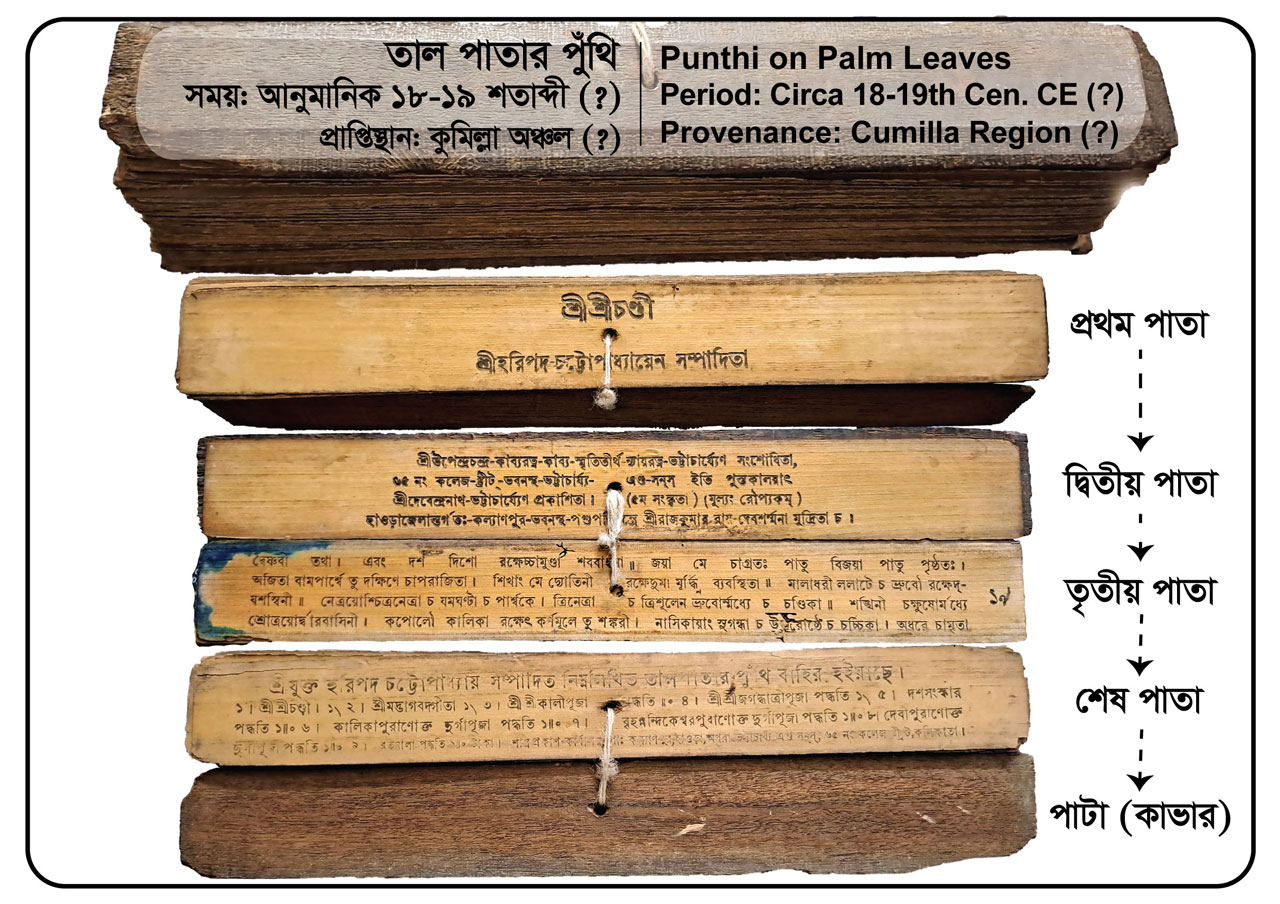 তাল পাতার পুঁথি
সময়: আনুমানিক ১৮-১৯ শতাব্দী (?)
প্রাপ্তিস্থান: কুমিল্লা অঞ্চল (?)
Punthi on Palm Leaves
Period: Circa 18-19th Cen. CE (?)
Provenance: Cumilla Region (?)
শ্রীশ্রীচণ্ডী
শ্রীহরিপদ-চট্টোপাধ্যায়েন সম্পাদিতা
প্রথম পাতা
শ্রীউপেন্দ্রচন্দ্র-কাব্যরত্ন-কাব্য-স্মৃতিতীর্থ-ন্যায়রত্ন-ভট্টাচার্য্যেণ সংশোধিতা,
৬৫ নং কলেজ-ষ্ট্রীট্-ভবনস্থ-ভট্টাচার্য্য- এণ্ড-সন্‌স্ ইতি পুস্তকালয়াৎ
শ্রীদেবেন্দ্রনাথ-ভট্টাচার্য্যেণ প্রকাশিতা। (৫ম সংস্কৃতা) (মূল্যং রৌপ্যকম্)
হাওড়াজেলান্তর্গতঃ-কল্যাণপুর-ভবনস্থ-পশুপতি শ্রীরাজকুমার রায়-দেবশর্ম্মনা মুদ্রিতা চ।
দ্বিতীয় পাতা
বৈষ্ণবী তথা। এবং দশ দিশো রক্ষেচ্চামুণ্ডা শববাহনা॥ জয়া মে চাগ্রতঃ পাতু বিজয়া পাতু পৃষ্ঠতঃ।
অজিতা বামপার্শ্বে তু দক্ষিণে চাপরাজিতা। শিখাং মে দ্যোতিনী রক্ষেদুমা মূর্দ্ধ্নি ব্যবস্থিতা॥ মালাধরী ললাটে চ ভ্রুবৌ রক্ষেদ্-
যশস্বিনী॥ নেত্রয়োশ্চিত্রনেত্রা চ যমঘণ্টা চ পার্শ্বকে। ত্রিনেত্রা চ ত্রিশূলেন ভ্রুবোর্ম্মধ্যে চ চণ্ডিকা॥ শঙ্খিনী চক্ষুষোর্মধ্যে
শ্রোত্রয়োর্দ্বারবাসিনী। কপোলৌ কালিকা রক্ষেৎ কর্ণমূলে তু শঙ্করী। নাসিকায়াং সুগন্ধা চ উত্তরোষ্ঠে চ চর্চ্চিকা। অধরে চামৃতা
১৭
তৃতীয় পাতা
শ্রীযুক্ত হরিপদ চট্টোপাধ্যায় সম্পাদিত নিম্নলিখিত তালপাতার পুঁথি বাহির হইয়াছে।
১। শ্রীশ্রীচণ্ডী ১৲ ২। শ্রীমদ্ভাগবদ্গীতা ১৲ ৩। শ্রীশ্রীকালীপূজা পদ্ধতি ॥০ ৪। শ্রীশ্রীজগদ্ধাত্রীপূজা পদ্ধতি ১৲ ৫। দশসংস্কার
পদ্ধতি ১॥০ ৬। কালিকাপুরাণোক্ত দুর্গাপূজা পদ্ধতি ১॥০ ৭। বৃহন্নন্দিকেশ্বরপুরাণোক্ত দুর্গাপূজা পদ্ধতি ১॥০ ৮। দেবীপুরাণোক্ত
দুর্গাপূজা পদ্ধতি ১॥০ ৬৫ নং কলেজ ষ্ট্রীট, কলিকাতা।
শেষ পাতা
পাটা (কাভার)